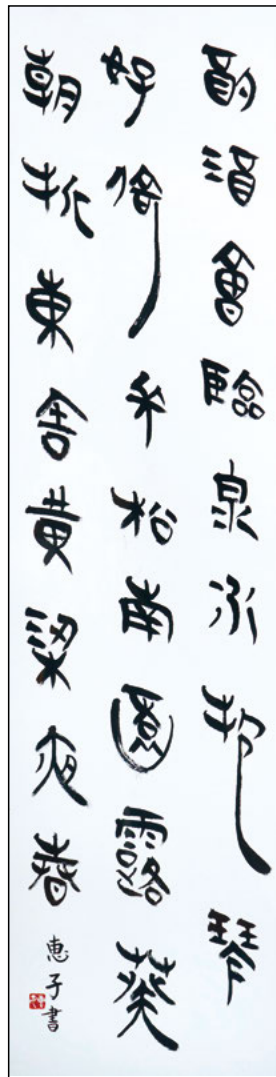 酌酒會臨泉水抱琴
好倚長松南園露葵
朝折東舍黃粱夜舂
惠子書